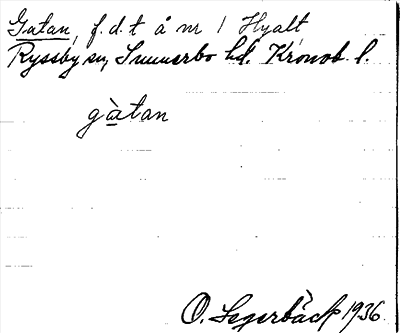 Gatan, f.d.t å nr 1 Hyalt
Ryssby sn, Sunnerbo hd. Kronob. l.
gàtan
O. Segerbäck 1936